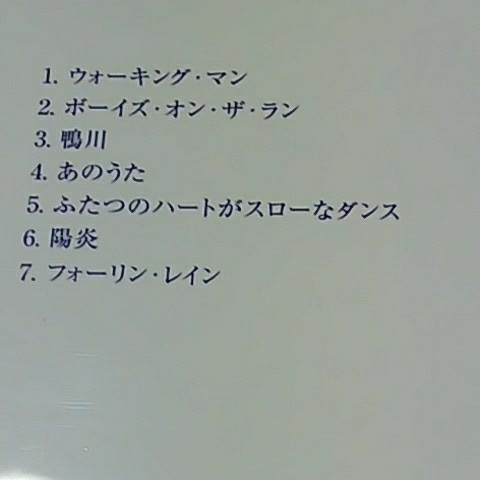 1. ウォーキング・マン
2. ボーイズ・オン・ザ・ラン
3. 鴨川
4. あのうた
5. ふたつのハートがスローなダンス
6. 陽炎
7. フォーリン・レイン